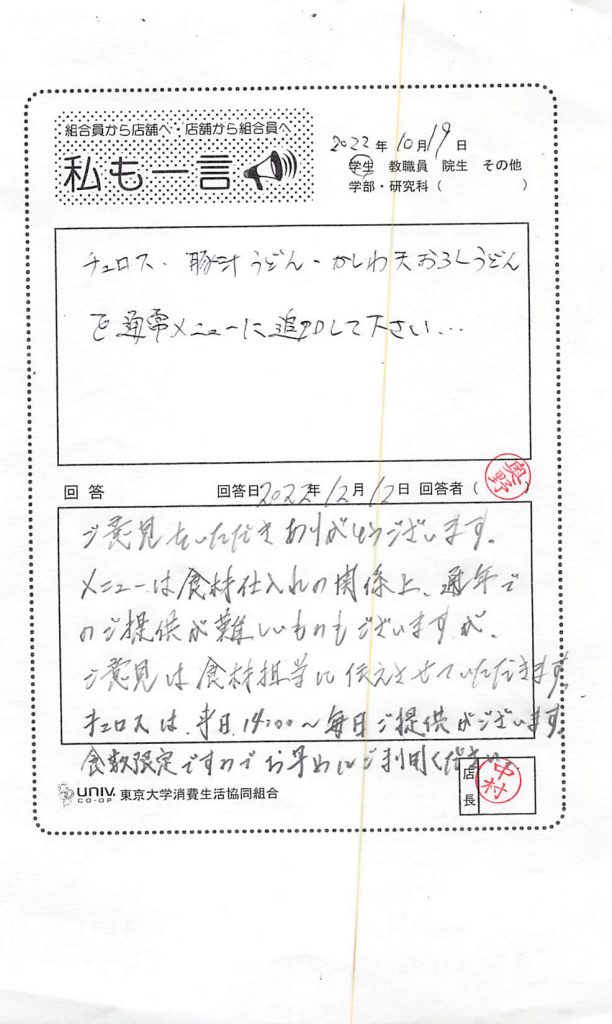 組合員から店舗へ・店舗から組合員へ
私も一言
2022年10月19日
学生 教職員 院生 その他
学部・研究科( )
チュロス・豚汁うどん・かしわ天おろしうどん
を通常メニューに追加して下さい...
回答 回答日2022年12月12日 回答者( 奥野 )
ご意見をいただきありがとうございます。
メニューは食材仕入れの関係上、通年で
のご提供が難しいものもございますが、
ご意見は食材担当に伝えさせていただきます。
チュロスは、平日14:00〜毎日ご提供がございます。
食数限定ですのでお早めにご利用ください。
UNIV. CO-OP 東京大学消費生活協同組合
店長 中村